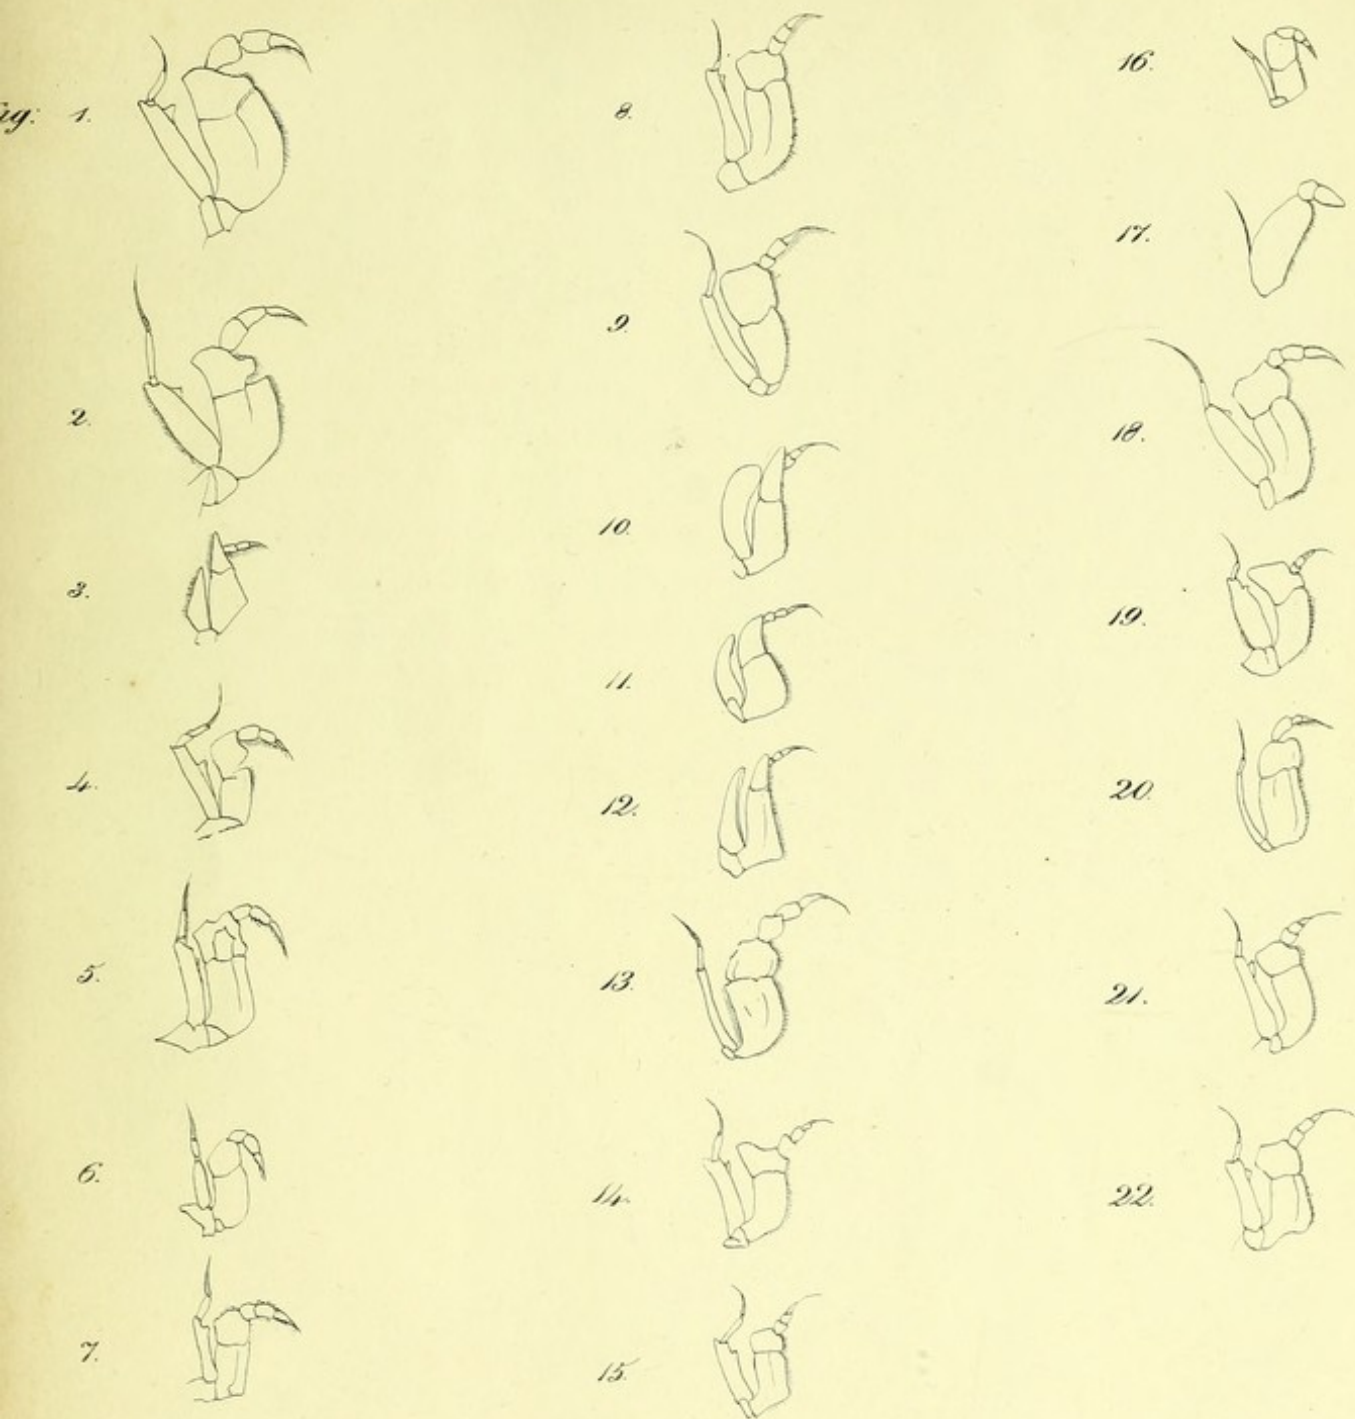 1.
2.
3.
4.
5.
6.
7.
8.
9.
10.
11.
12.
13.
14.
15.
16.
17.
18.
19.
20.
21.
22.